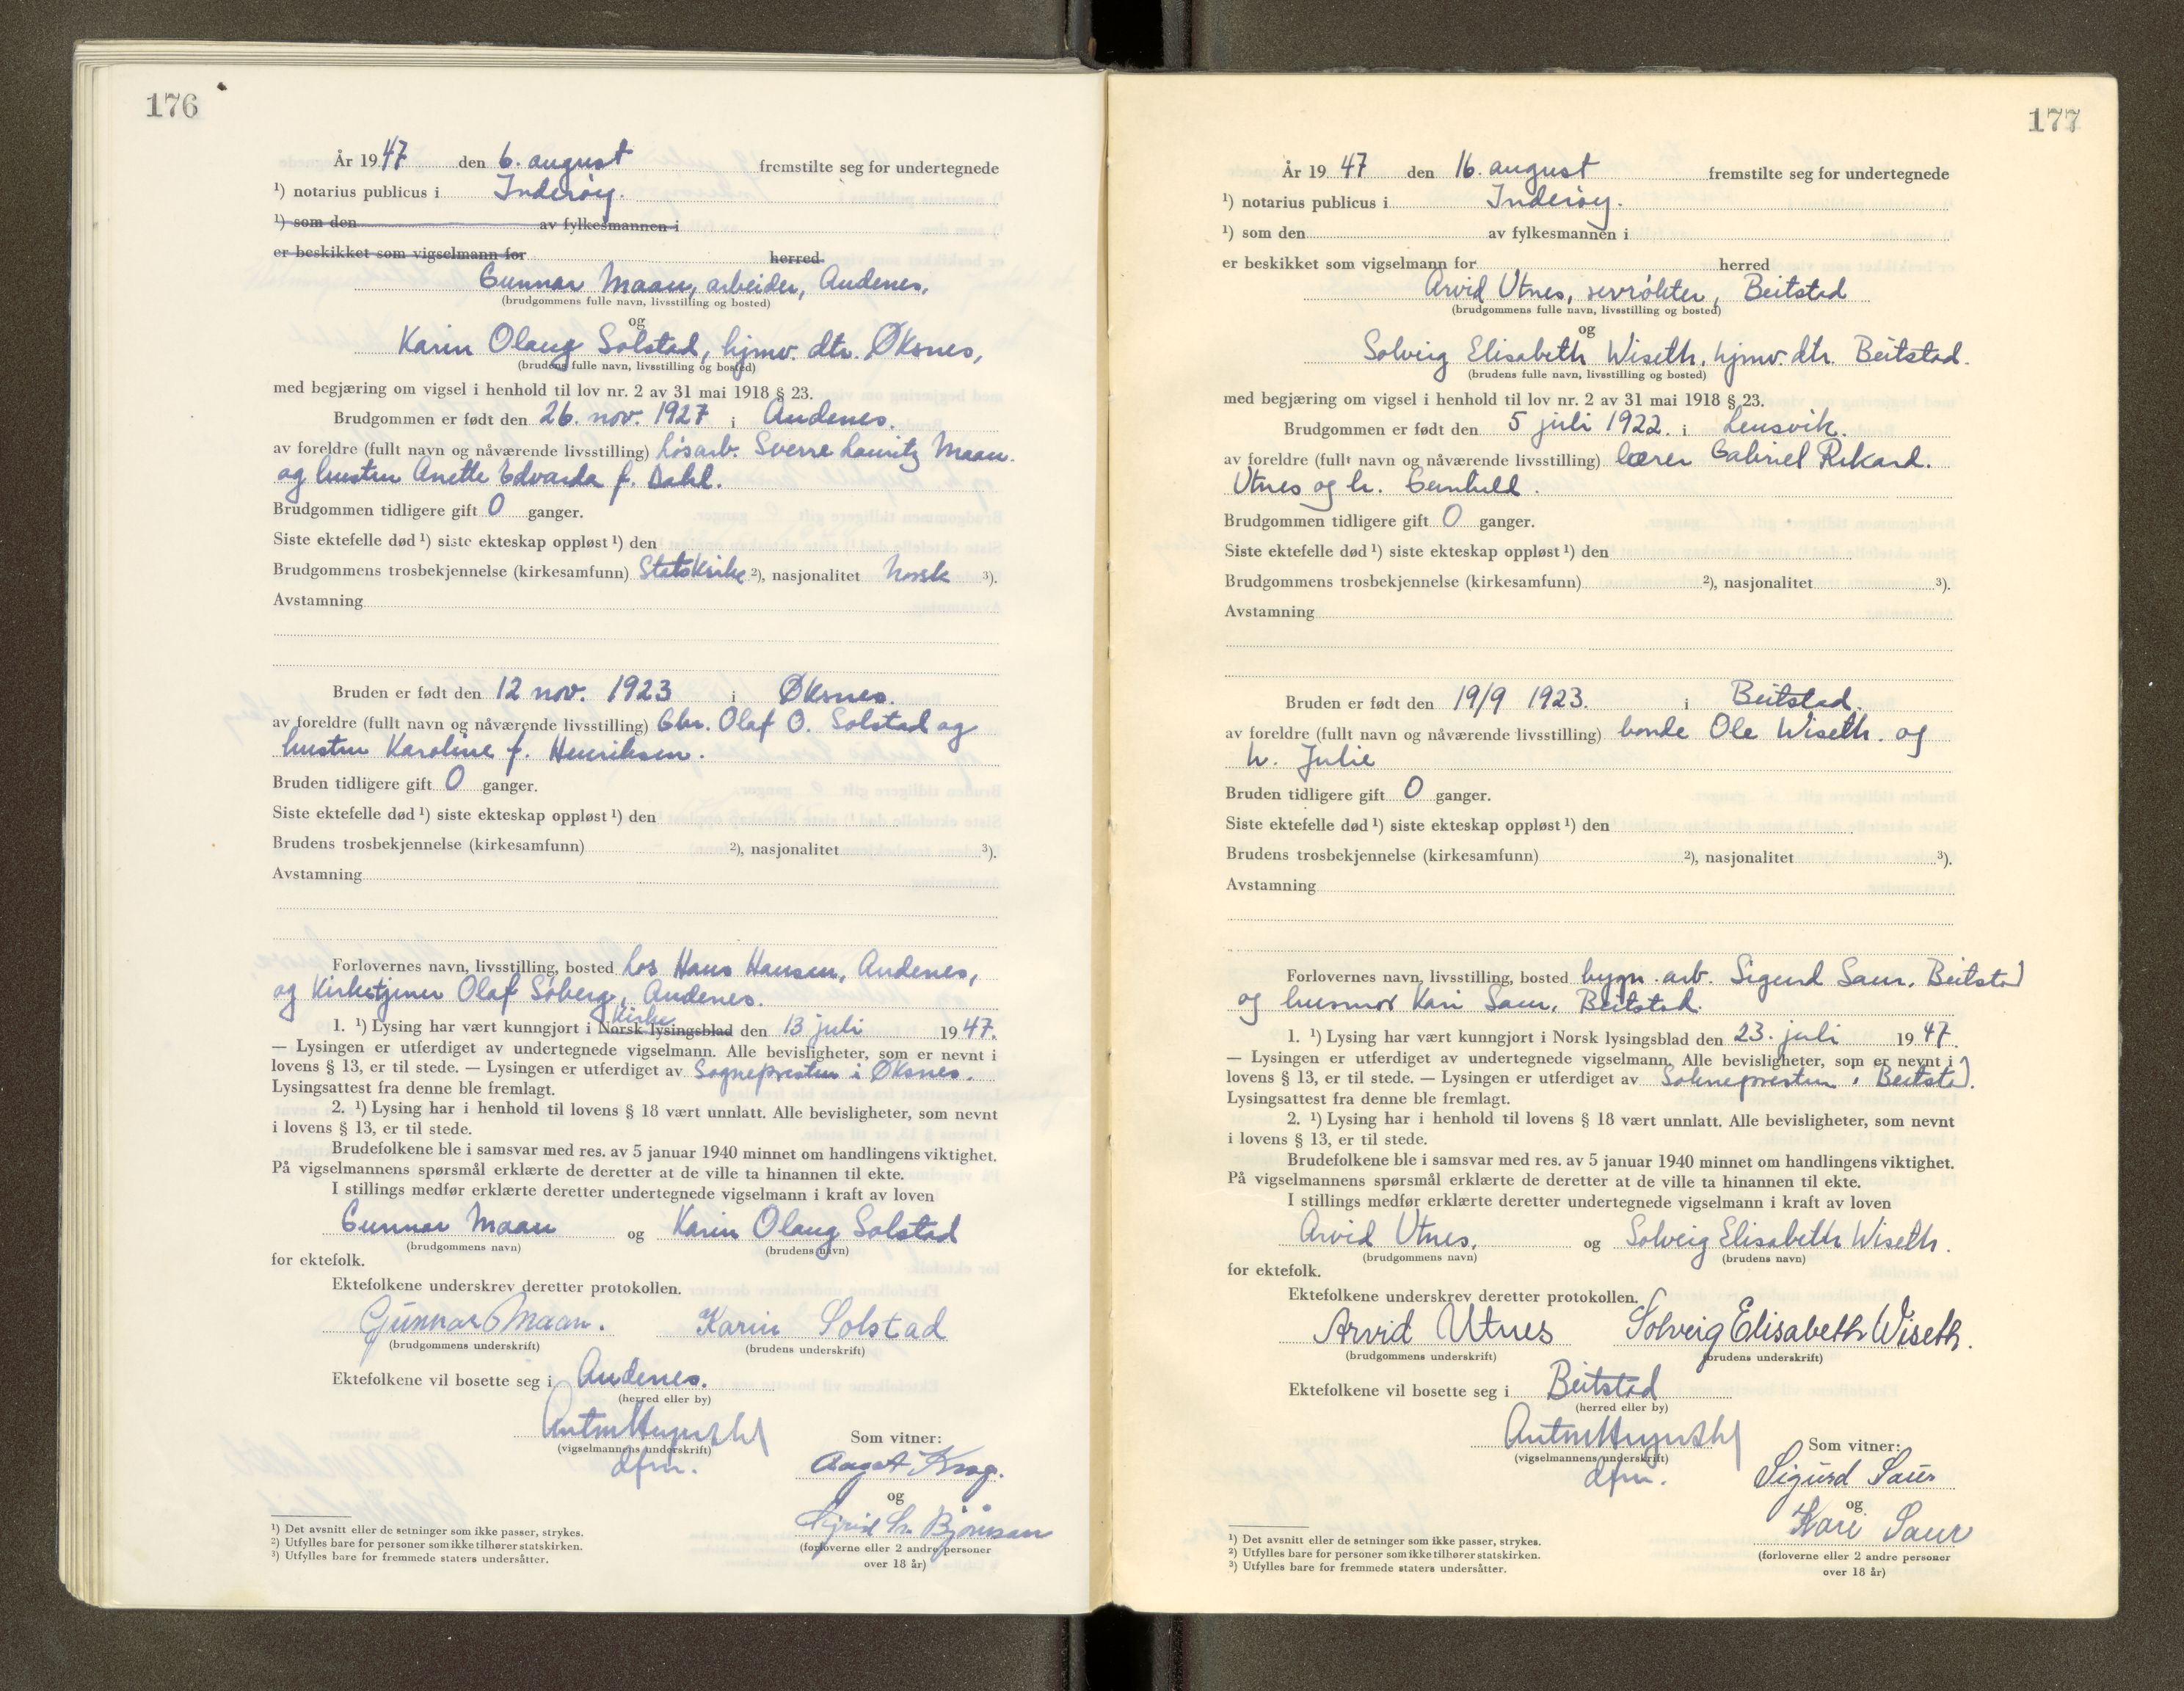 176
År 1947 den 6. august fremstilte seg for undertegnede
¹) notarius publicus i Inderøy.
¹) som den av fylkesmannen i
er beskikket som vigselmann for herred
Gunnar Maan, arbeider, Andenes,
(brudgommens fulle navn, livsstilling og bosted)
og
Karin Olaug Solstad, hjmv. dtr. Øksnes,
(brudens fulle navn, livsstilling og bosted)
med begjæring om vigsel i henhold til lov nr. 2 av 31 mai 1918 § 23.
Brudgommen er født den 26. nov. 1927 i Andenes.
av foreldre (fullt navn og nåværende livsstilling) Løsarb. Sverre Lauritz Maan
og hustru Anette Edvarda f. Dahl.
Brudgommen tidligere gift 0 ganger.
Siste ektefelle død ¹) siste ekteskap oppløst ¹) den
Brudgommens trosbekjennelse (kirkesamfunn) Statskirke ²), nasjonalitet Norsk ³).
Avstamning
Bruden er født den 12 nov. 1923 i Øksnes.
av foreldre (fullt navn og nåværende livsstilling) Gbr. Olaf O. Solstad og
hustru Karoline f. Henriksen.
Bruden tidligere gift 0 ganger.
Siste ektefelle død ¹) siste ekteskap oppløst ¹) den
Brudens trosbekjennelse (kirkesamfunn) ²), nasjonalitet ³).
Avstamning
Forlovernes navn, livsstilling, bosted Los Hans Hansen, Andenes,
og Kirketjener Olaf Soberg, Andenes.
Kirke
1. ¹) Lysing har vært kunngjort i Norsk lysingsblad den 13 juli 1947.
— Lysingen er utferdiget av undertegnede vigselmann. Alle bevisligheter, som er nevnt i
lovens § 13, er til stede. — Lysingen er utferdiget av Sognepresten i Øksnes.
Lysingsattest fra denne ble fremlagt.
2. ¹) Lysing har i henhold til lovens § 18 vært unnlatt. Alle bevisligheter, som nevnt
i lovens § 13, er til stede.
Brudefolkene ble i samsvar med res. av 5 januar 1940 minnet om handlingens viktighet.
På vigselmannens spørsmål erklærte de deretter at de ville ta hinannen til ekte.
I stillings medfør erklærte deretter undertegnede vigselmann i kraft av loven
Gunnar Maan og Karin Olaug Solstad
(brudgommens navn) (brudens navn)
for ektefolk.
Ektefolkene underskrev deretter protokollen.
Gunnar Maan. Karin Solstad
(brudgommens underskrift) (brudens underskrift)
Ektefolkene vil bosette seg i Andenes.
(herred eller by)
(vigselmannens underskrift)
dfm.
Som vitner:
Aagot Krog.
og
Sigrid Bjørnsan
(forloverne eller 2 andre personer
over 18 år)
¹) Det avsnitt eller de setninger som ikke passer, strykes.
²) Utfylles bare for personer som ikke tilhører statskirken.
³) Utfylles bare for fremmede staters undersåtter.
177
År 1947 den 16. august fremstilte seg for undertegnede
¹) notarius publicus i Inderøy.
¹) som den av fylkesmannen i
er beskikket som vigselmann for herred
Arvid Utnes, revrøkter, Beitstad
(brudgommens fulle navn, livsstilling og bosted)
og
Solveig Elisabeth Wiseth, hjmv. dtr. Beitstad.
(brudens fulle navn, livsstilling og bosted)
med begjæring om vigsel i henhold til lov nr. 2 av 31 mai 1918 § 23.
Brudgommen er født den 5 juli 1922. i Lensvik.
av foreldre (fullt navn og nåværende livsstilling) lærer Gabriel Rikard.
Utnes og h. Gunhild.
Brudgommen tidligere gift 0 ganger.
Siste ektefelle død ¹) siste ekteskap oppløst ¹) den
Brudgommens trosbekjennelse (kirkesamfunn) ²), nasjonalitet ³).
Avstamning
Bruden er født den 19/9 1923. i Beitstad.
av foreldre (fullt navn og nåværende livsstilling) bonde Ole Wiseth. og
h. Julie
Bruden tidligere gift 0 ganger.
Siste ektefelle død ¹) siste ekteskap oppløst ¹) den
Brudens trosbekjennelse (kirkesamfunn) ²), nasjonalitet ³).
Avstamning
Forlovernes navn, livsstilling, bosted bygn. arb. Sigurd Saur, Beitstad
og husmor Kari Saur, Beitstad.
1. ¹) Lysing har vært kunngjort i Norsk lysingsblad den 23. juli 1947.
— Lysingen er utferdiget av undertegnede vigselmann. Alle bevisligheter, som er nevnt i
lovens § 13, er til stede. — Lysingen er utferdiget av Sokneprestem i Beitstad.
Lysingsattest fra denne ble fremlagt.
2. ¹) Lysing har i henhold til lovens § 18 vært unnlatt. Alle bevisligheter, som nevnt
i lovens § 13, er til stede.
Brudefolkene ble i samsvar med res. av 5 januar 1940 minnet om handlingens viktighet.
På vigselmannens spørsmål erklærte de deretter at de ville ta hinannen til ekte.
I stillings medfør erklærte deretter undertegnede vigselmann i kraft av loven
Arvid Utnes. og Solveig Elisabeth Wiseth.
(brudgommens navn) (brudens navn)
for ektefolk.
Ektefolkene underskrev deretter protokollen.
Arvid Utnes Solveig Elisabeth Wiseth.
(brudgommens underskrift) (brudens underskrift)
Ektefolkene vil bosette seg i Beitstad
(herred eller by)
(vigselmannens underskrift)
dfm.
Som vitner:
Sigurd Saur
og
Kari Saur
(forloverne eller 2 andre personer
over 18 år)
¹) Det avsnitt eller de setninger som ikke passer, strykes.
²) Utfylles bare for personer som ikke tilhører statskirken.
³) Utfylles bare for fremmede staters undersåtter.